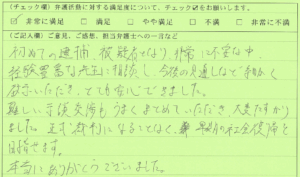 (チェック欄)弁護活動に対する満足度について、チェック☑をお願いします。
☑非常に満足 □満足 □やや満足 □不満 □非常に不満
(ご記入欄)ご意見、ご感想、担当弁護士への一言など
初めての逮捕、被疑者となり、非常に不安な中、
経験豊富な先生に相談し、今後の見通しなど細かく
教えていただき、とても安心できました。
難しい示談交渉もうまくまとめていただき、大変たすかり
ました。正式裁判になることなく、早期の社会復帰を
目指せます。
本当にありがとうございました。